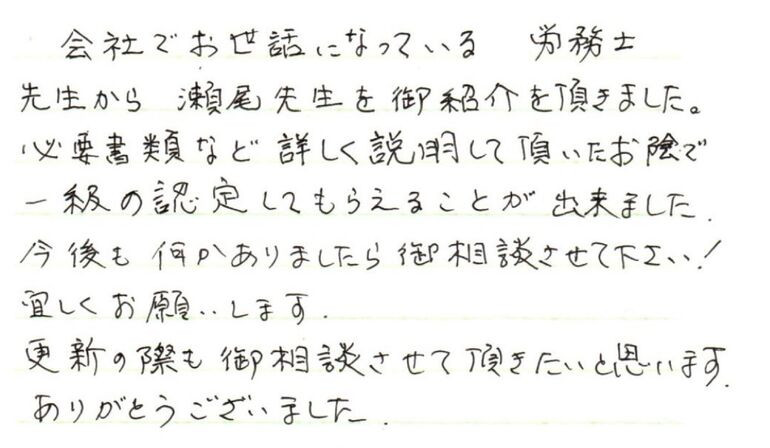 会社でお世話になっている 労務士
先生から 瀬尾先生を御紹介を頂きました。
必要書類など詳しく説明して頂いたお陰で
一級の認定してもらえることが出来ました.
今後も何かありましたら御相談させて下さい!
宜しくお願いします.
更新の際も御相談させて頂きたいと思います.
ありがとうございました.